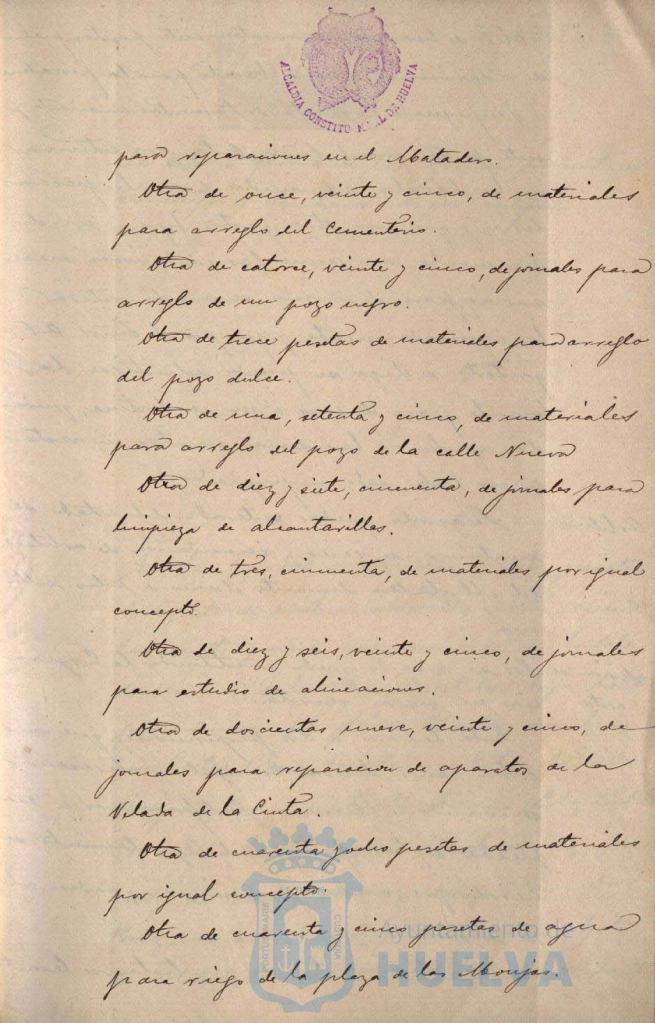 ALCALDIA CONSTITUCIONAL DE HUELVA
para reparaciones en el Matadero.
Otra de once, veinte y cinco, de materiales
para arreglo del Cementerio.
Otra de catorce, veinte y cinco, de jornales para
arreglo de un pozo negro.
Otra de trece pesetas de materiales para arreglo
del pozo dulce.
Otra de una, setenta y cinco, de materiales
para arreglo del pozo de la calle Nueva
Otra de diez y siete, cincuenta, de jornales para
limpieza de alcantarillas.
Otra de tres, cincuenta, de materiales por igual
concepto.
Otra de diez y seis, veinte y cinco, de jornales
para estudio de alineaciones.
Otra de doscientas nueve, veinte y cinco, de
jornales para reparacion de aparatos de la
Velada de la Cinta.
Otra de cuarenta y ocho pesetas de materiales
por igual concepto.
Otra de cuarenta y cinco pesetas de agua
para riego de la plaza de las Monjas.
Ayuntamiento de
HUELVA